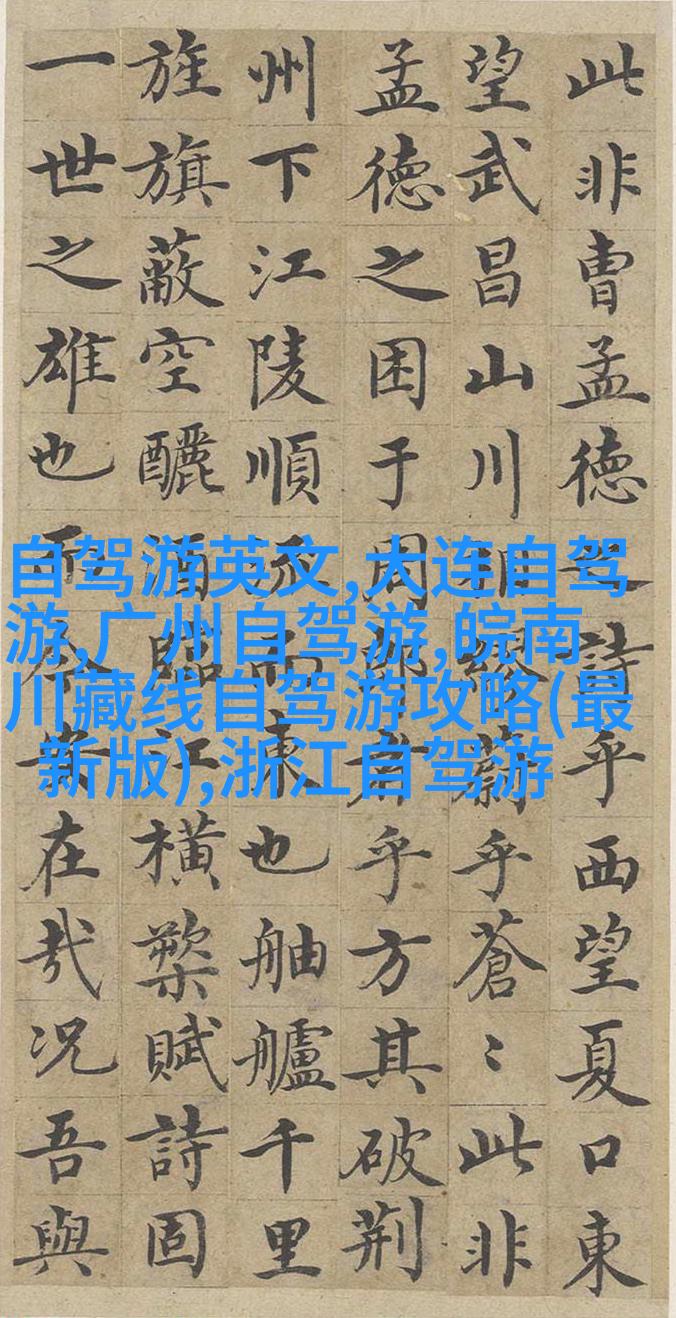 此非曹孟德之詩乎西望夏口東
望武昌山川相繆蔚乎蒼〻此非
孟德之困于周郎者乎方其破荆
州下江陵順流而東也舳艫千里
旌旗蔽空釃酒臨江横槊賦詩固
一世之雄也而今安在哉况吾與
自驾游英文,大连自驾
游,广州自驾游,皖南
川藏线自驾游攻略(最
新版),浙江自驾游